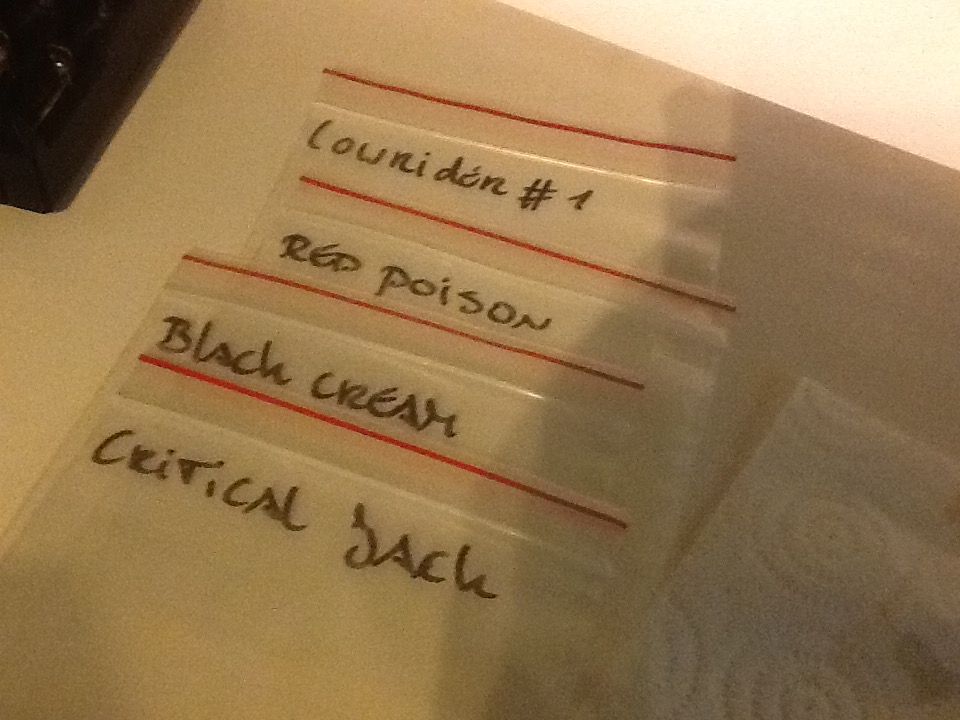 Lowrider #1
RED POISON
Black CREAM
CRiTiCAL JACK